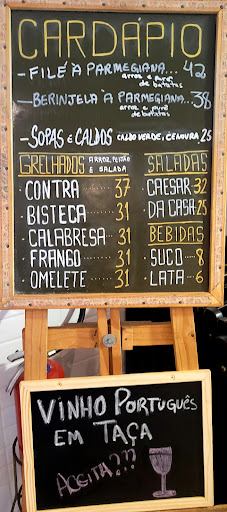 CARDÁPIO
- FILÉ À PARMEGIANA... 42
arroz e purê
de batatas
- BERINJELA À PARMEGIANA... 38
arroz e purê
de batatas
- SOPAS e CALDOS CALDO VERDE, CENOURA 25
GRELHADOS ARROZ, FEIJÃO
e SALADA
CONTRA ..... 37
BISTECA ..... 31
CALABRESA ... 31
FRANGO ..... 31
OMELETE .... 31
SALADAS
CAESAR 32
DA CASA 25
BEBIDAS
SUCO .. 8
LATA .. 6
VINHO PORTUGUÊS
EM TAÇA
ACEITA???